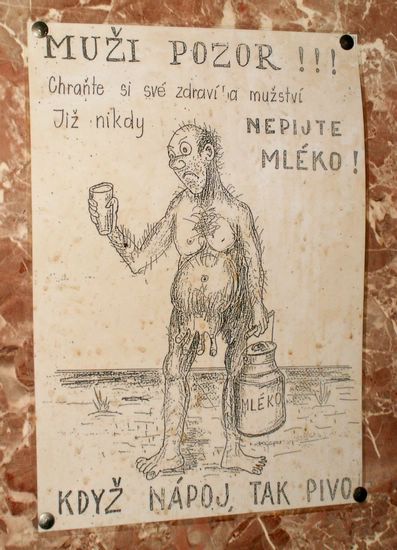 MUŽI POZOR !!!
Chraňte si své zdraví a mužství
Již nikdy NEPIJTE
MLÉKO !
MLÉKO
KDYŽ NÁPOJ, TAK PIVO